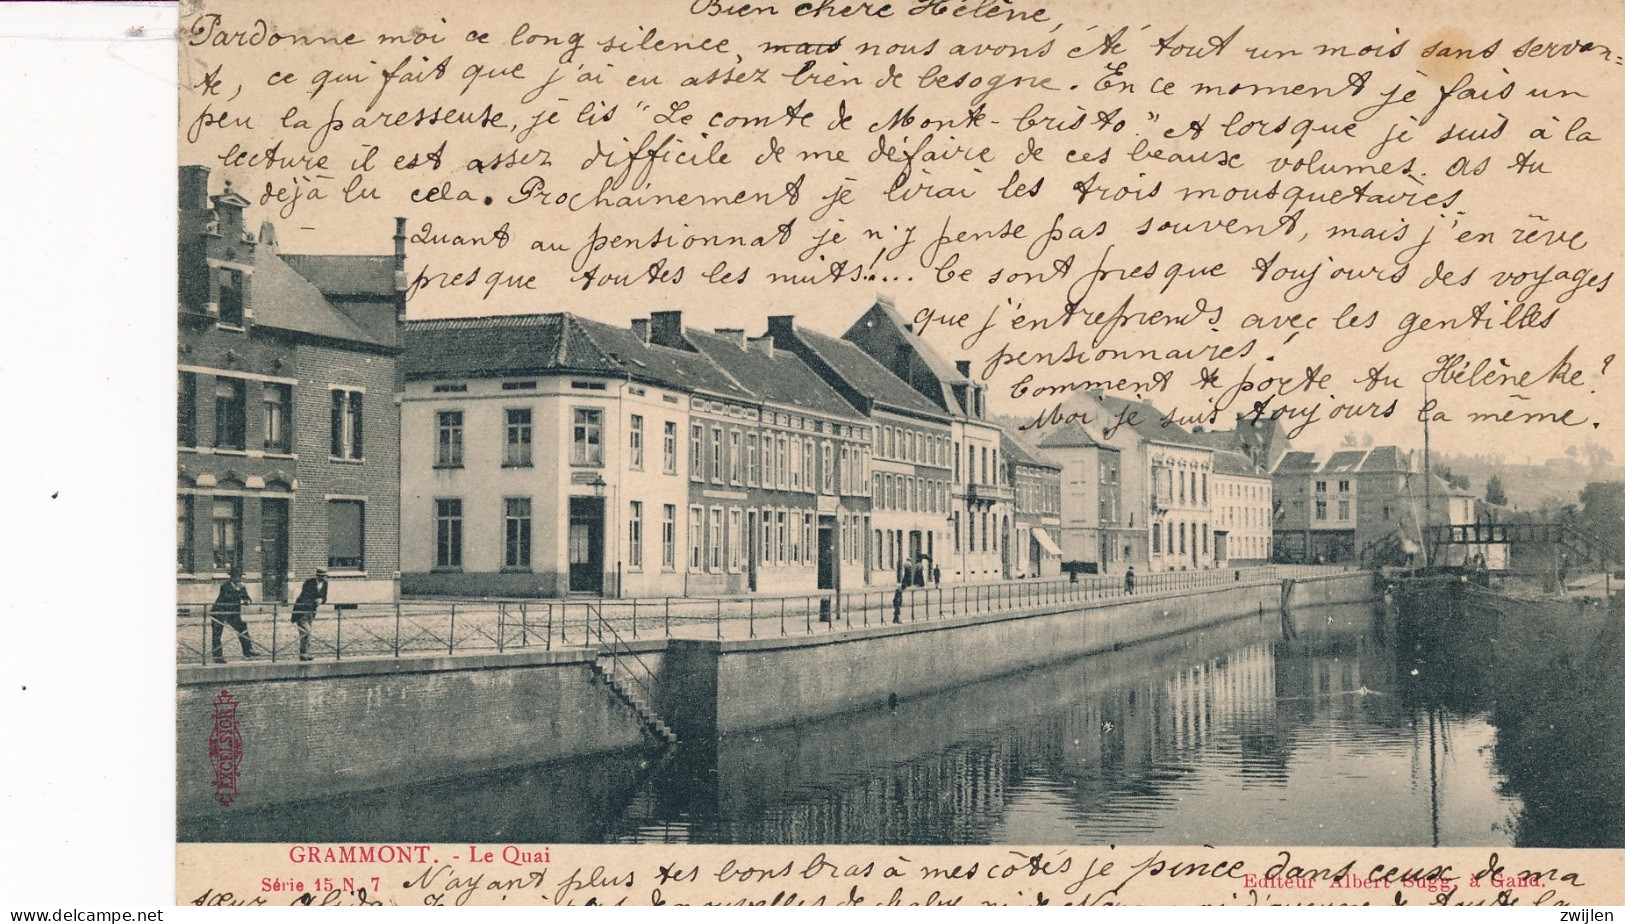 Bien chère Hélène,
Pardonne moi ce long silence, mais nous avons été tout un mois sans servan-
te, ce qui fait que j'ai eu assez bien de besogne. En ce moment je fais un
peu la paresseuse, je lis "Le comte de Monte-Cristo." et lorsque je suis à la
lecture il est assez difficile de me défaire de ces beaux volumes. as tu
déjà lu cela. Prochainement je lirai les trois mousquetaires
Quant au pensionnat je n'y pense pas souvent, mais j'en rêve
presque toutes les nuits!.... Ce sont presque toujours des voyages
que j'entreprends avec les gentilles
pensionnaires!
Comment te porte tu Hélèneke?
Moi je suis toujours la même.
EXCELSIOR
GRAMMONT. - Le Quai
Série 15 N. 7
Editeur Albert Sugg, à Gand.
N'ayant plus tes bons bras à mes côtés je pince dans ceux de ma
sœur
zwijlen